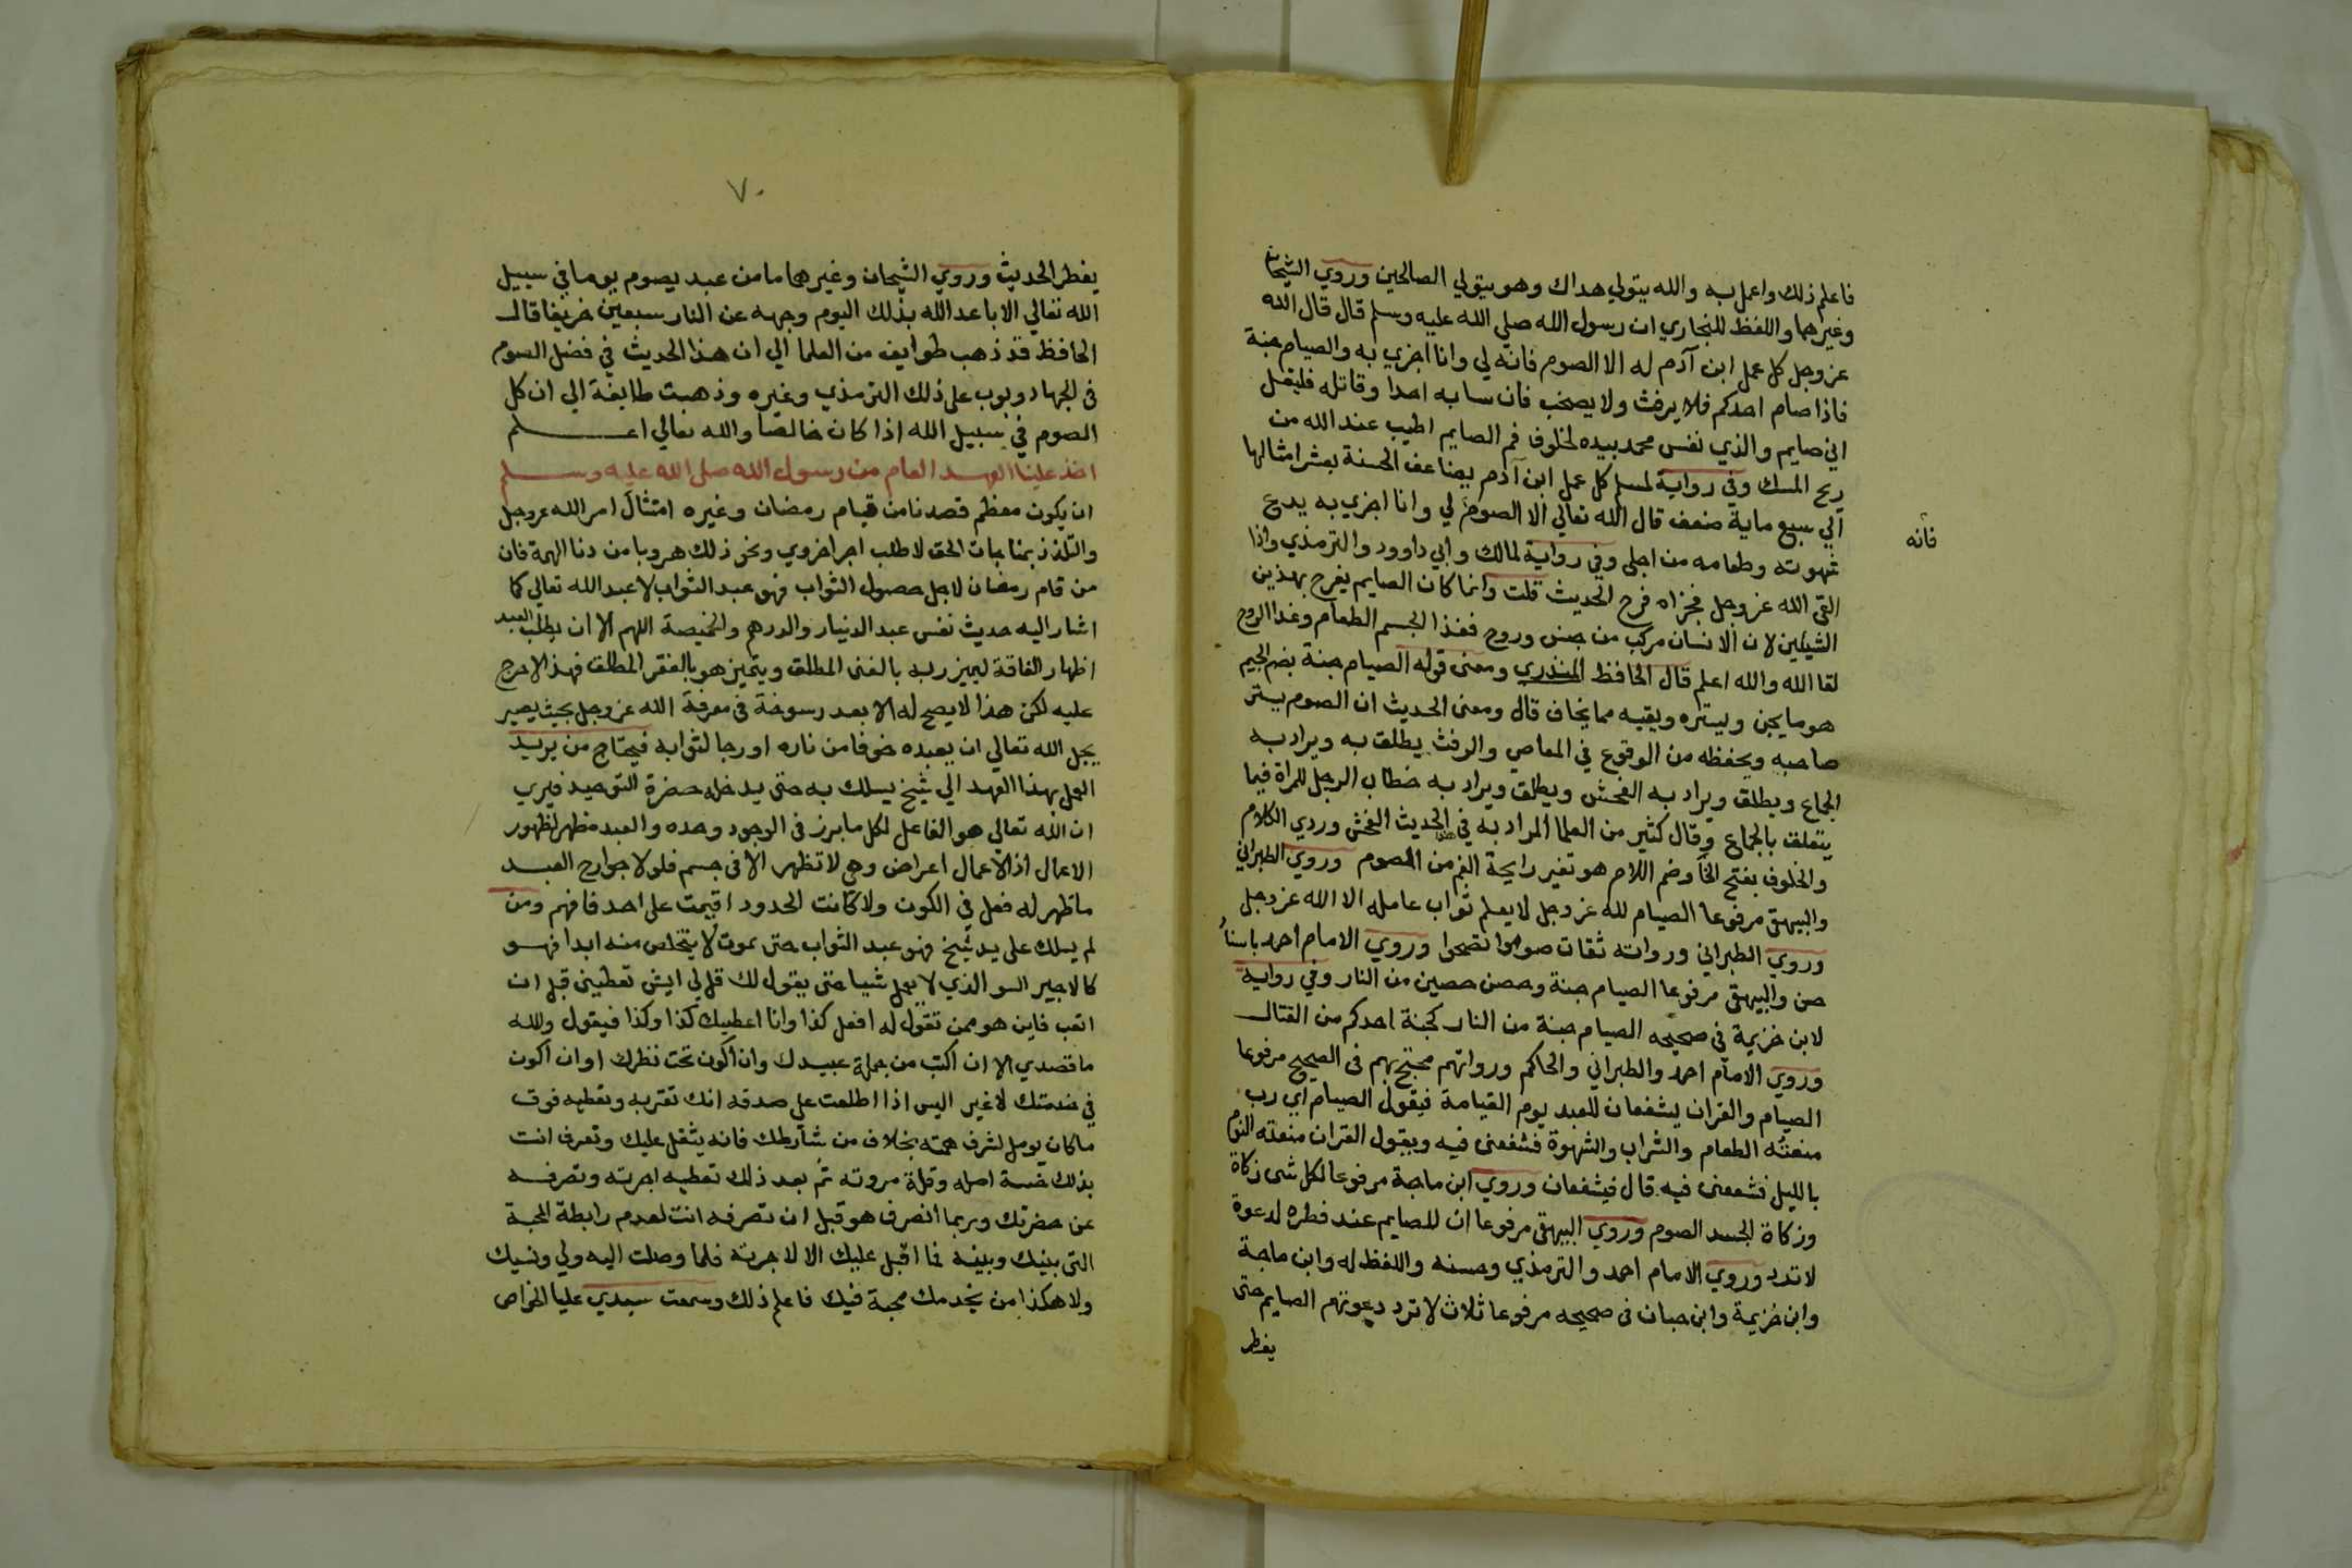 فاعلم ذلك واعمل به والله يتولي هداك وهو يتولي الصالحين وروي الشيخان
وغيرهما واللفظ للبخاري ان رسول الله صلي الله عليه وسلم قال قال الله
عز وجل كل عمل ابن آدم له الا الصوم فانه لي وانا اجزي به والصيام جنة
فاذا صام احدكم فلا يرفث ولا يصخب فان سابه احدا وقاتله فليقل
اني صايم والذي نفس محمد بيده لخلوف فم الصايم اطيب عند الله من
ريح المسك وفي رواية لمسلم كل عمل ابن آدم يضاعف الحسنة بعشر امثالها
الي سبع ماية ضعف قال الله تعالي الا الصوم لي وانا اجزي به يدع
فانه
شهوته وطعامه من اجلي وفي رواية لمالك وابي داوود والترمذي واذا
القي الله عز وجل فجزاه فرح الحديث قلت وانما كان الصايم يفرح بهذين
الشيئين لان الانسان مركب من جسم وروح فغذا الجسم الطعام وغذا الروح
لقا الله والله اعلم قال الحافظ المنذري ومعني قوله الصيام جنة بضم الجيم
هو ما يجن ويستره ويقيه مما يخاف قال ومعني الحديث ان الصوم يستر
صاحبه ويحفظه من الوقوع في المعاصي والرفث يطلق به ويراد به
الجماع ويطلق ويراد به الفحش ويطلق ويراد به خطاب الرجل للمراة فيما
يتعلق بالجماع وقال كثير من العلما المراد به في هذا الحديث الفحش وردي الكلام
والخلوف بفتح الخآ وضم اللام هو تغير رايحة الفم من الصوم وروي الطبراني
والبيهقي مرفوعا الصيام لله عز وجل لا يعلم ثواب عامله الا الله عز وجل
وروي الطبراني ورواته ثقات صوموا تصحوا وروي الامام احمد باسناد
حسن والبيهقي مرفوعا الصيام جنة وحصن حصين من النار وفي رواية
لابن خزيمة في صحيحه الصيام جنة من النار كجنة احدكم من القتال
وروي الامام احمد والطبراني والحاكم ورواتهم محتج بهم في الصحيح مرفوعا
الصيام والقران يشفعان للعبد يوم القيامة فيقول الصيام اي رب
منعته الطعام والشراب والشهوة فشفعني فيه ويقول القران منعته النوم
بالليل فشفعني فيه قال فيشفعان وروي ابن ماجة مرفوعا لكل شي زكاة
وزكاة الجسد الصوم وروي البيهقي مرفوعا ان للصايم عند فطره لدعوة
لا ترد وروي الامام احمد والترمذي وحسنه واللفظ له وابن ماجة
وابن خزيمة وابن حبان في صحيحه مرفوعا ثلاث لا ترد دعوتهم الصايم حتي
يفطر
٧٠
يفطر الحديث وروي الشيخان وغيرهما ما من عبد يصوم يوما في سبيل
الله تعالي الا باعد الله بذلك اليوم وجهه عن النار سبعين خريفا قال
الحافظ قد ذهب طوايف من العلما الي ان هذا الحديث في فضل الصوم
في الجهاد وبوب علي ذلك الترمذي وغيره وذهبت طايفة الي ان كل
الصوم في سبيل الله اذا كان خالصا والله تعالي اعلم
اخذ علينا العهد العام من رسول الله صلي الله عليه وسلم
ان يكون معظم قصدنا من قيام رمضان وغيره امتثال امر الله عز وجل
والتلذذ بمناجات الحق لا طلب اجر اخروي ونحو ذلك هروبا من دنا الهمة فان
من قام رمضان لاجل حصول الثواب فهو عبد الثواب لا عبد الله تعالي كما
اشار اليه حديث تعس عبد الدينار والدرهم والخميصة اللهم الا ان يطلب العبد
اظهار الفاقة ليميز ربه بالغني المطلق ويتميز هو بالفقر المطلق فهذا لا حرج
عليه لكن هذا لا يصح له الا بعد رسوخة في معرفة الله عز وجل بحيث يصير
يجل الله تعالي ان يعبده خوفا من ناره او رجا لثوابه فيحتاج من يريد
العمل بهذا العهد الي شيخ يسلك به حتي يدخله حضرة التوحيد فيري
ان الله تعالي هو الفاعل لكل ما برز في الوجود وحده والعبد مظهر لظهور
الاعمال اذ الاعمال اعراض وهي لا تظهر الا في جسم فلولا جوارح العبد
ما ظهر له فعل في الكون ولا كانت الحدود اقيمت علي احد فافهم ومن
لم يسلك علي يد شيخ فهو عبد الثواب حتي يموت لا يتخلص منه ابدا فهو
كالاجير السو الذي لا يعمل شيا حتي يقول لك قل لي ايش تعطيني قبل ان
اتعب فاين هو ممن تقول له افعل كذا وانا اعطيك كذا وكذا فيقول والله
ما قصدي الا ان اكتب من جملة عبيدك وان اكون تحت نظرك او ان اكون
في خدمتك لا غير اليس اذا اطلعت علي صدقه انك تقربه وتعطيه فوق
ما كان يومل لشرف همته بخلاف من شارطك فانه يثقل عليك وتعرف انت
بذلك خسة اصله وقلة مروته ثم بعد ذلك تعطيه اجرته وتصرفه
عن حضرتك وربما انصرف هو قبل ان تصرفه انت لعدم رابطة المحبة
التي بينك وبينه فما اقبل عليك الا لاجرته فلما وصلت اليه ولي ونسيك
ولا هكذا من يخدمك محبة فيك فاعلم ذلك وسمعت سيدي عليا الخواص